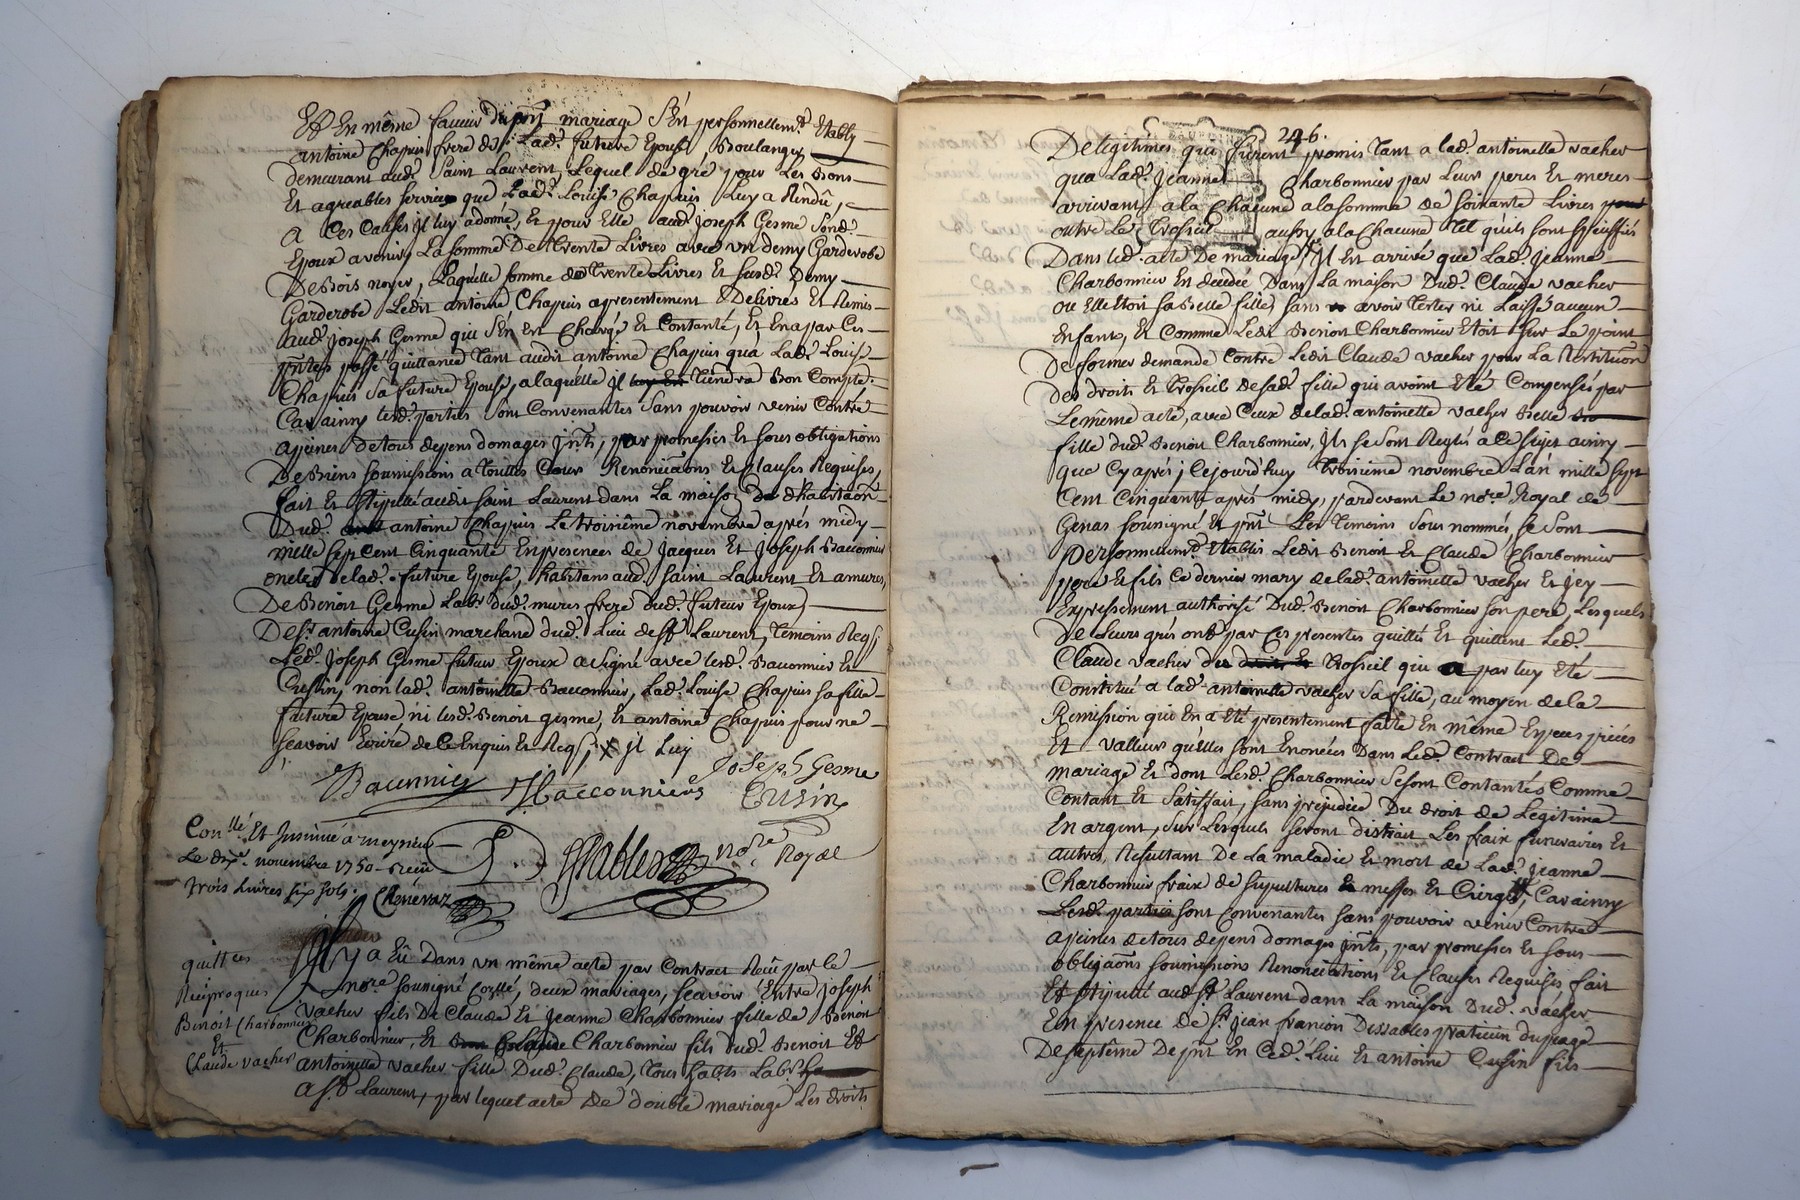 Et En même faveur du pnt mariage S'Est personnellemt Etably
antoine Chapuis frere de Lade future Epouse Boulanger
demeurant aude Saint Laurent, Lequel de gré pour Les Bons
Et agreables services que Lade Louise Chapuis Luy a Rendû,
A Ces Causes jl luy adonné, Et pour Elle aud joseph Gesme Sond.
Epoux avenir, La somme De trente Livres avec un demy Garderobe
De Bois noyer, Laquelle somme de trente Livres Et susd. Demy
Garderobe Ledit antoine Chapuis apresentement Delivrés Et Remis
aud. joseph Gesme qui S'En Est Chargé Et Contanté, Et En a par Ces
pntes passé quittance tant audit antoine Chapuis qu'a Lade Louise
Chapuis Sa future Epouse, alaquelle jl tiendra Bon Compte.
Car ainsy lesd. parties Sont Convenantes Sans pouvoir venir Contre
apeines de tous depens domages jnts, par promesses Et sous obligations
De Biens soumissions a toutes Cours Renonciaôns Et Clauses Requises,
fait Et stipullé audit saint Laurent dans La maison d'habitaôn
Dud. antoine Chapuis Le troisième novembre aprés midy
mille sept Cent Cinquante En presences de jacques Et joseph Bacconnier
oncles de lad. future Epouse, habitans aud. saint Laurent Et amures,
De Benoit Gesme Labr. dud. mures frere dud. futeur Epoux
De sr. antoine Cusin marchand dud. Lieu de st Laurent, temoins Reqs
Led. joseph Gesme futeur Epoux a signé avec lesd. Bacconnier Et
Cussin, non lad. antoinette Bacconnier, Lad. Louise Chapuis sa fille
future Epouse, ni lesd. Benoit gesme, Et antoine Chapuis pour ne
sçavoir Ecrire de Ce Enquis Et Reqs, x jl Luy
Joseph Gesme
Cusin
nore Royal
Conllé Et Insinué à meyzieu
Le novembre 1750 Reçu
trois Livres six sols.
quittces
Reciproques
Benoit Charbonnier
Et
Claude vacher
Il y a Eû Dans un même acte par Contract Reçu par le
nore soussigné, deux mariages, sçavoir Entre joseph
vacher fils De Claude Et jeanne Charbonnier fille de Benoit
Charbonnier, Et Charbonnier fils dud. Benoit Et
antoinette vacher fille Dud. Claude, tous habts Labrs
a st Laurent, par lequel acte de double mariage Les droits
246.
De legitimes qui furent promis tant a lad. antoinette vacher
qua Lad. jeanne Charbonnier par Leurs peres Et meres
arrivant ala Chacune ala somme de soixante Livres
outre Le trosseil aussy ala Chacune tel qu'ils sont speciffiés
Dans led. acte De mariage, jl Est arrivé que Lad. jeanne
Charbonnier Est decedée Dans La maison Dud. Claude vacher
ou Elle Etoit sa Belle fille, sans avoir tester ni Laissé aucun
Enfants, Et Comme Ledit Benoit Charbonnier Etoit sur Le point
De former demande Contre Ledit Claude vacher pour La Restitution
Des droits Et trosseils de sad. fille qui avoint Eté Compensés par
Le même acte, avec Ceux de lad. antoinette vacher Belle
fille dud. Benoit Charbonnier, jls se Sont Reglés a Ce sujet ainsy
que Cy aprés; Cejourd'huy troisième novembre L'an mille sept
Cent Cinquante aprés midy, pardevant Le nore Royal de
Genas soussigné Et pnt Les temoins sous nommés se Sont
personnellemt Etablis Ledit Benoit Et Claude Charbonnier
pere Et fils Ce dernier mary de lad. antoinette vacher Et jcy
Expressement authorisé Dud. Benoit Charbonnier son pere, Lesquels
De leurs grés ont par Ces presentes quitté Et quittent Led.
Claude vacher du trosseil qui a par luy Eté
Constitué a lad. antoinette vacher sa fille, au moyen de la
Remission qui En a Eté presentement faitte En même Especes pieces
Et valleur qu'elles sont Enoncées Dans Led. Contract De
mariage Et dont Lesd. Charbonnier se sont Contantés Comme
Contant Et Satisfait, sans prejudice Du droit de Legitime
En argent, sur Lesquels seront distrait Les fraix funeraires Et
autres, Resultant De La maladie Et mort de Lad. jeanne
Charbonnier fraix de sepultures messes Et Cierges, Car ainsy
Lesd. parties sont Convenantes sans pouvoir venir Contre
apeines de tous depens domages jnts, par promesses Et sous
obligaôns soumissions Renonciations Et Clauses Requises fait
Et stipullé aud. st Laurent dans La maison Dud. vacher
En presence de sr. jean françois Dessables praticien du
De septême De pnt En Ced. Lieu Et antoine Cussin fils